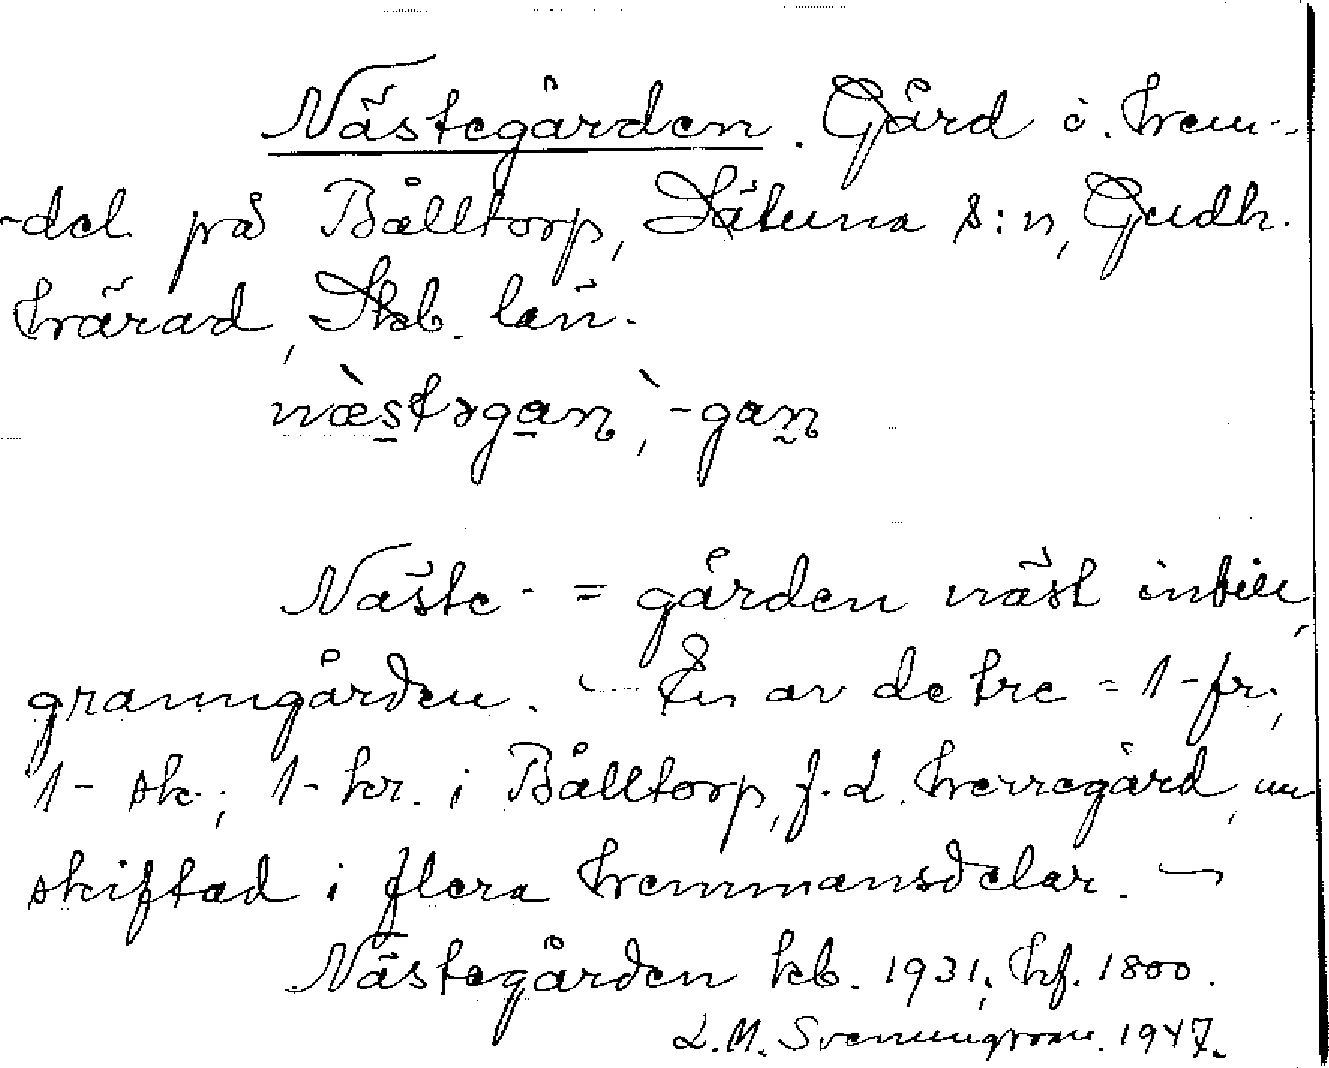 Nästegården. Gård o. hem-
-del på Bålltorp, Sätuna s:n, Gudh.
härad, Skb. län.
næ̀stəgan, -gan
Näste- = gården näst intill
granngården. — En av de tre = 1-fr.,
1- sk., 1- kr. i Bålltorp, f.d. herregård, nu
skiftad i flera hemmansdelar. —
Nästegården kb. 1931, hf. 1800.
L.M. Svenungsson. 1947.